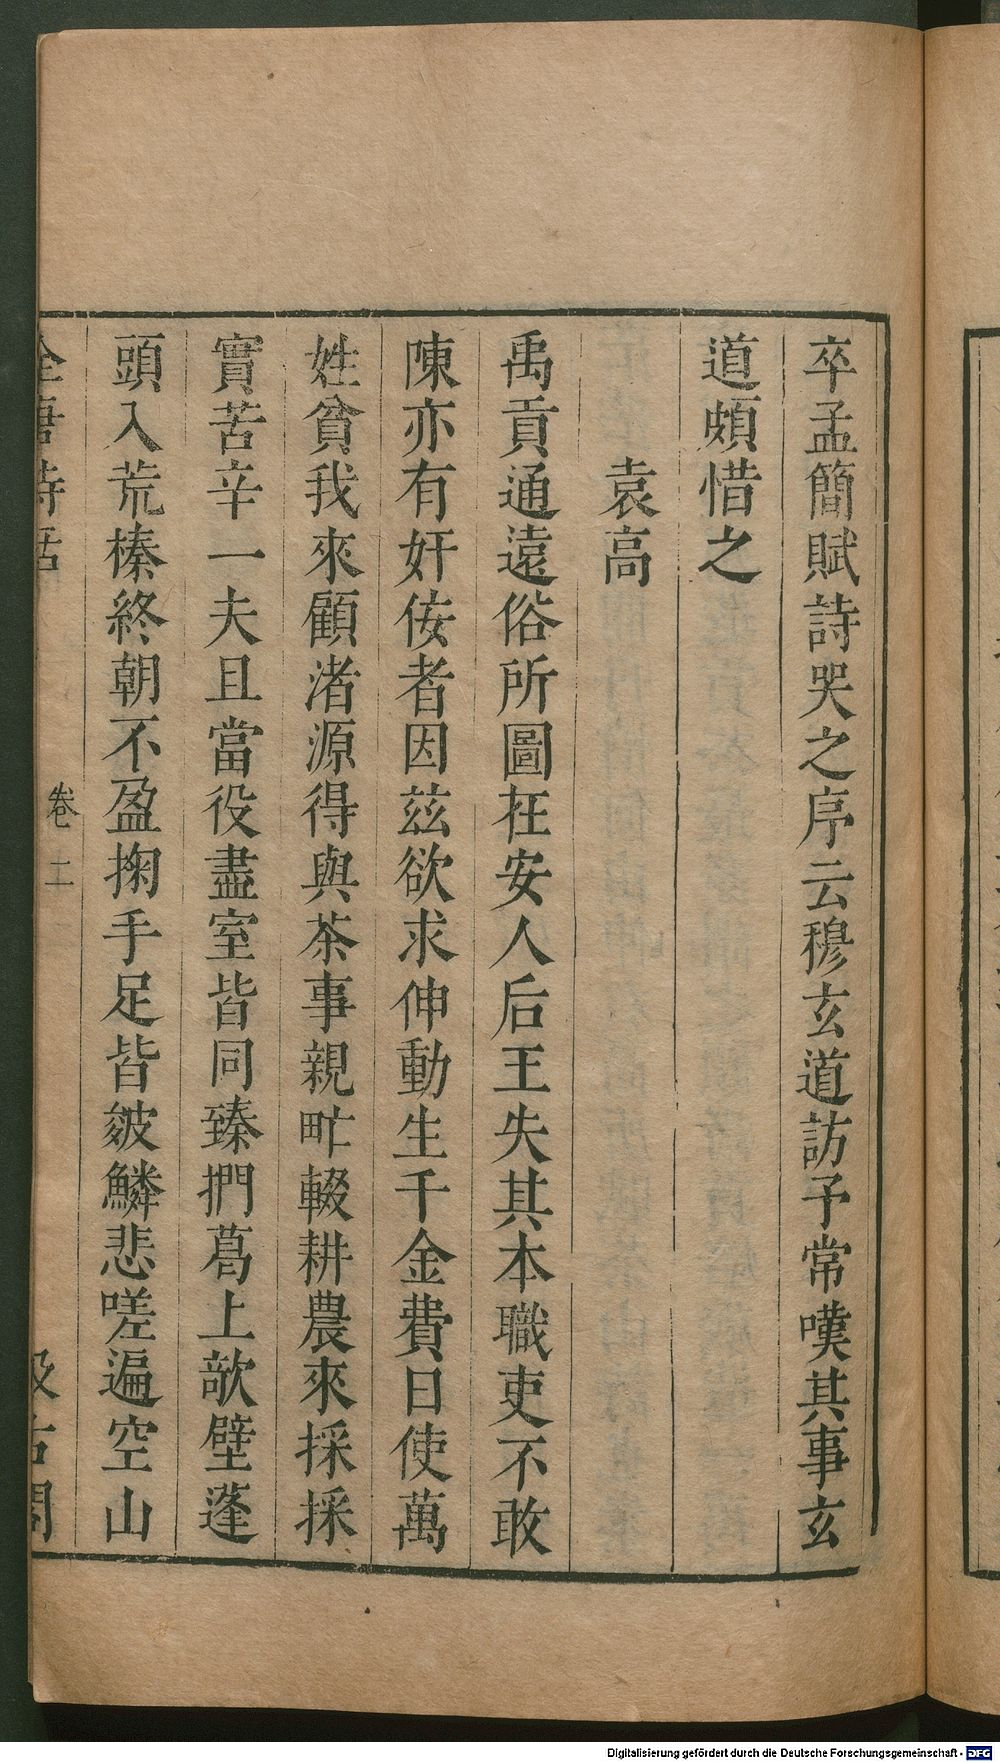 卒孟簡賦詩哭之序云穆玄道訪予常嘆其事玄
道頗惜之
袁高
禹貢通遠俗所圖在安人后王失其本職吏不敢
陳亦有奸佞者因茲欲求伸動生千金費日使萬
姓貧我來顧渚源得與茶事親甿輟耕農來採採
實苦辛一夫且當役盡室皆同臻捫葛上欹壁蓬
頭入荒榛終朝不盈掬手足皆皴鱗悲嗟遍空山
全唐詩話
卷二
汲古閣
Digitalisierung gefördert durch die Deutsche Forschungsgemeinschaft - DFG